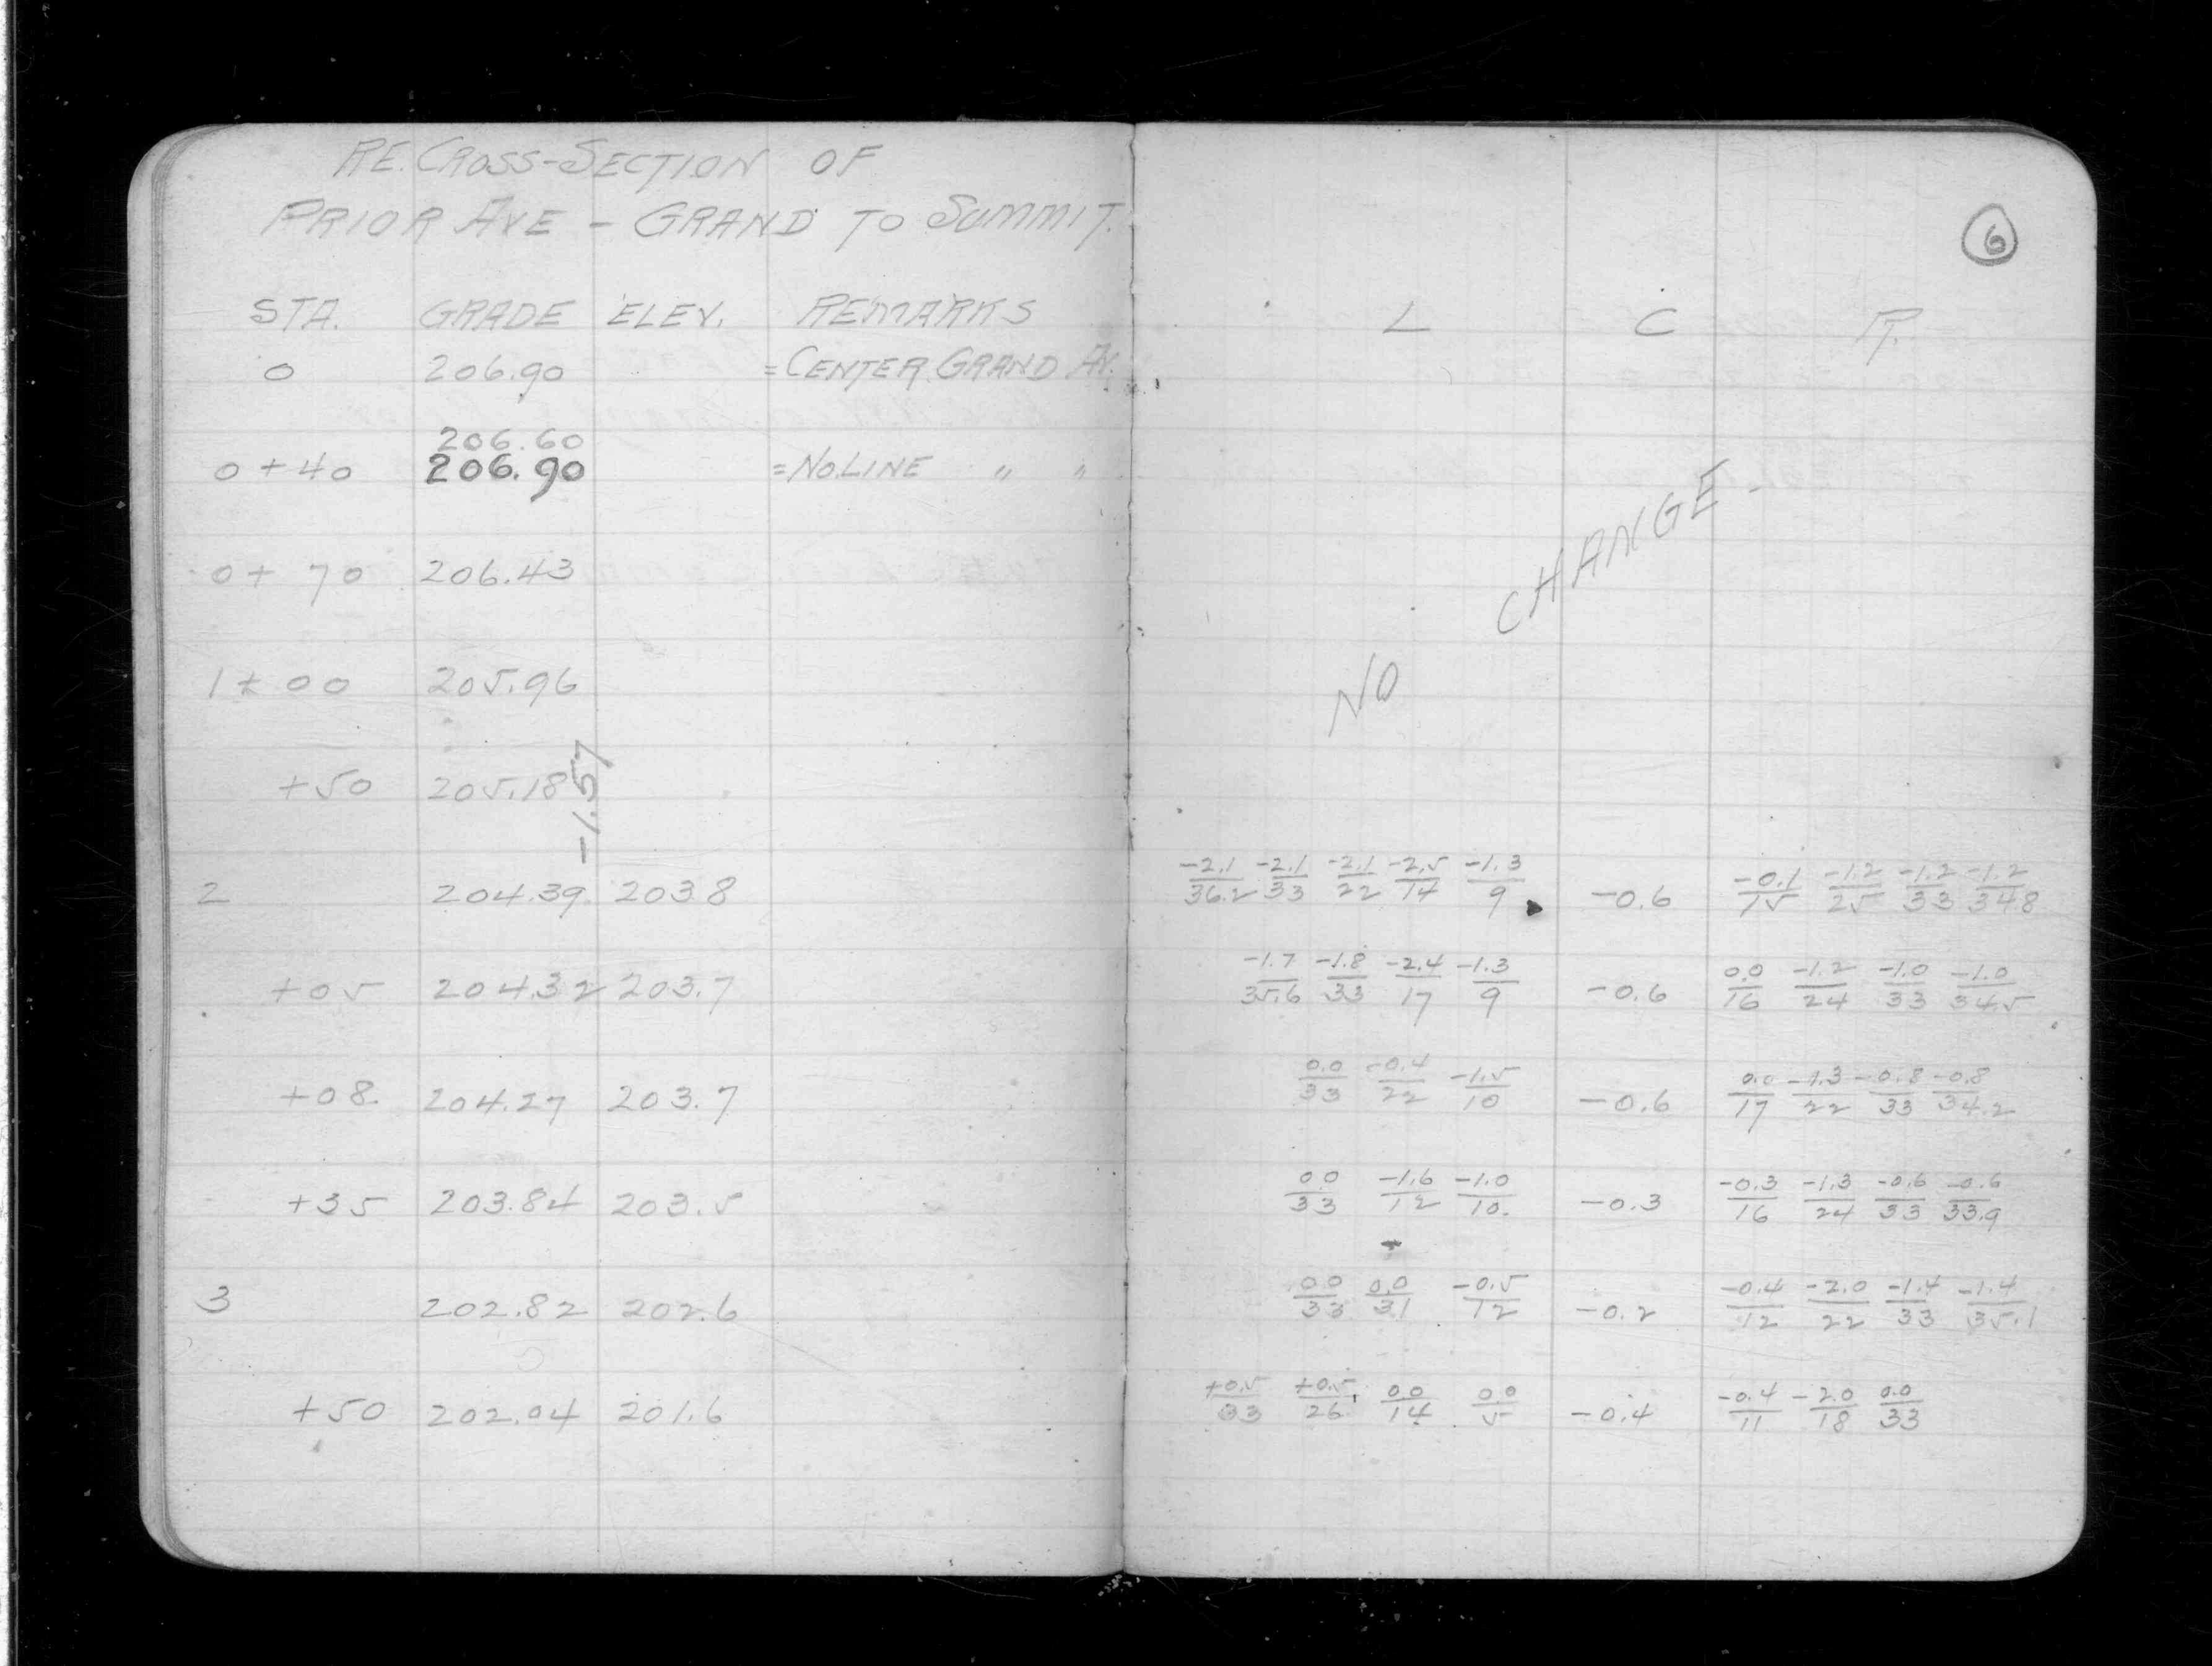 RE. CROSS-SECTION OF
PRIOR AVE - GRAND TO SUMMIT.
STA. GRADE ELEV. REMARKS
0 206.90 = CENTER GRAND AV.
206.60
0+40 206.90 = NO. LINE " "
0+70 206.43
1+00 205.96
+50 205.18
-1.57
2 204.39 203.8
+05 204.32 203.7
+08 204.27 203.7
+35 203.84 203.5
3 202.82 202.6
+50 202.04 201.6
6
L C R.
NO CHANGE -
-2.1/36.2 -2.1/33 -2.1/22 -2.5/14 -1.3/9 -0.6 -0.1/15 -1.2/25 -1.2/33 -1.2/34.8
-1.7/35.6 -1.8/33 -2.4/17 -1.3/9 -0.6 0.0/16 -1.2/24 -1.0/33 -1.0/34.5
0.0/33 -0.4/22 -1.5/10 -0.6 0.0/17 -1.3/22 -0.8/33 -0.8/34.2
0.0/33 -1.6/12 -1.0/10. -0.3 -0.3/16 -1.3/24 -0.6/33 -0.6/33.9
0.0/33 0.0/31 -0.5/12 -0.2 -0.4/12 -2.0/22 -1.4/33 -1.4/35.1
+0.5/33 +0.5/26 0.0/14 0.0/5 -0.4 -0.4/11 -2.0/18 0.0/33